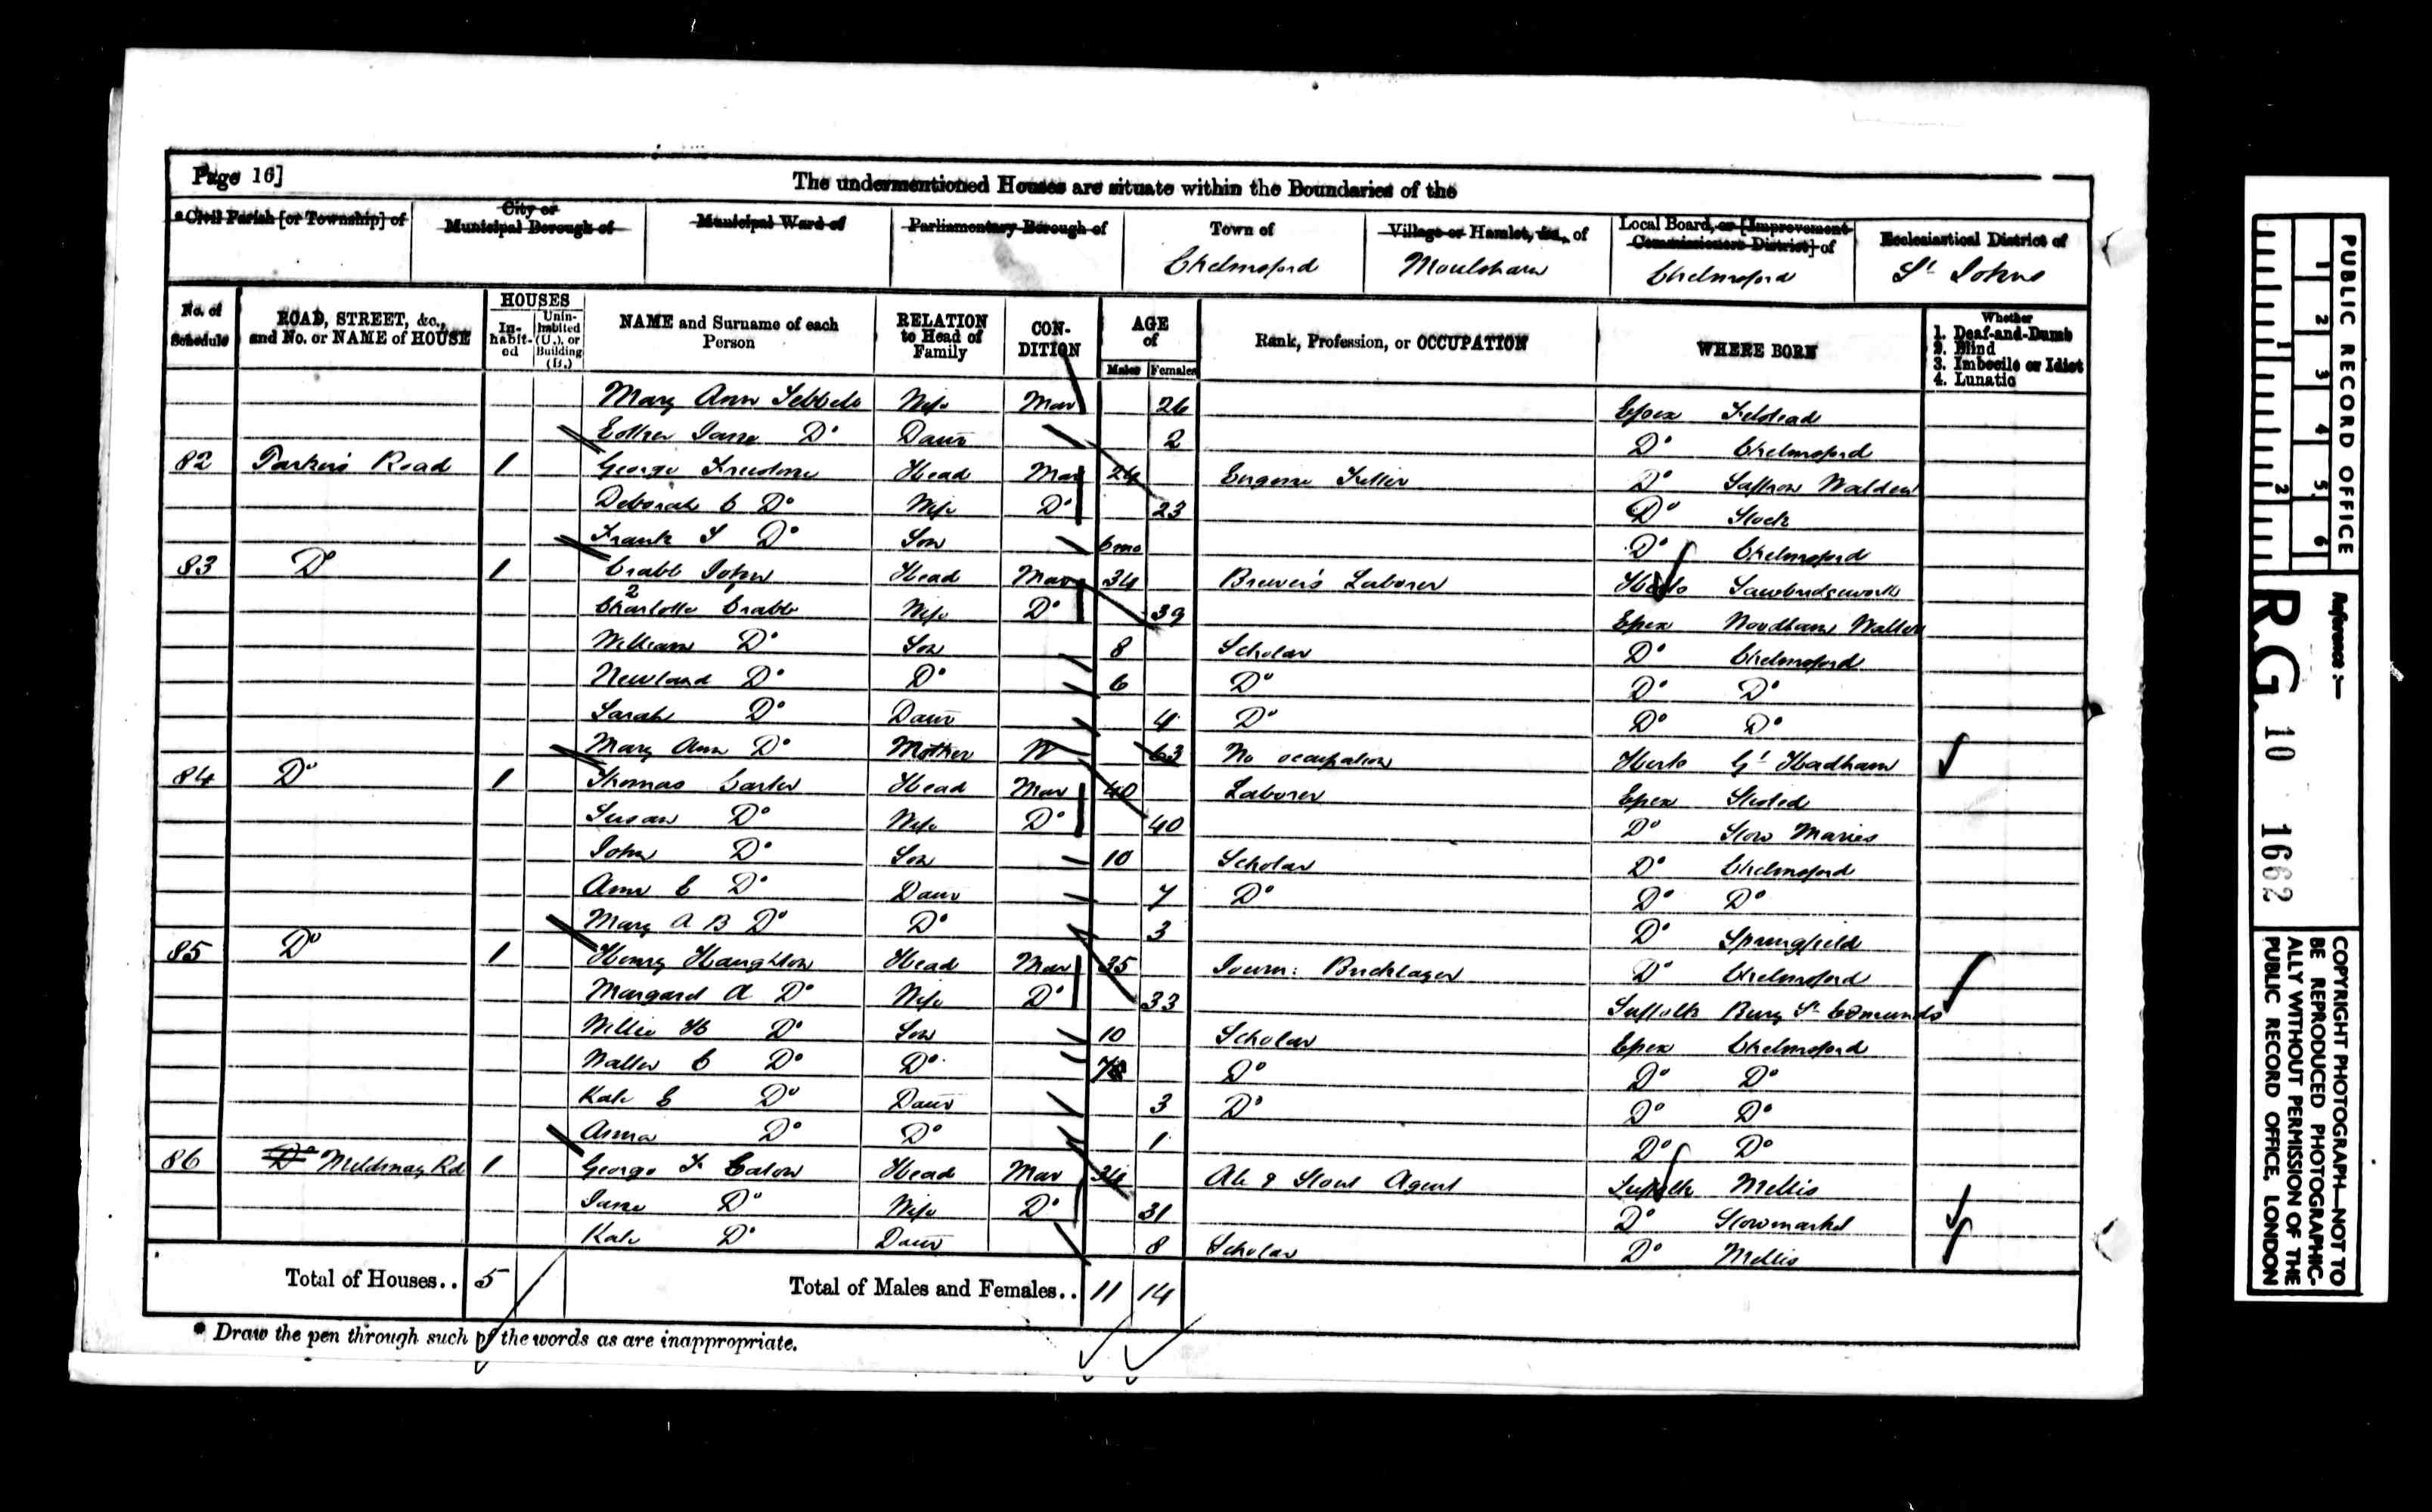 Page 16]
The undermentioned Houses are situate within the Boundaries of the
Civil Parish [or Township] of
City or Municipal Borough of
Municipal Ward of
Parliamentary Borough of
Town of
Chelmsford
Village or Hamlet, &c., of
Moulsham
Local Board, or [Improvement Commissioners District] of
Chelmsford
Ecclesiastical District of
St Johns
No. of Schedule
ROAD, STREET, &c., and No. or NAME of HOUSE
HOUSES
In-habit-ed
Unin-habited (U.), or Building (B.)
NAME and Surname of each Person
RELATION to Head of Family
CON-DITION
AGE of
Males Females
Rank, Profession, or OCCUPATION
WHERE BORN
Whether
1. Deaf-and-Dumb
2. Blind
3. Imbecile or Idiot
4. Lunatic
Mary Ann Wife Mar 26 Essex Felstead
Esther Jane Do Daur 2 Do Chelmsford
82 Parkers Road 1 George Freestone Head Mar 24 Engine Fitter Do Saffron Walden
Deborah C Do Wife Do 23 Do Stock
Frank S Do Son 6mo Do Chelmsford
83 Do 1 Crabb John Head Mar 34 Brewer's Laborer Herts Sawbridgeworth
2
Charlotte Crabb Wife Do 39 Essex Woodham Walter
William Do Son 8 Scholar Do Chelmsford
Newland Do Do 6 Do Do Do
Sarah Do Daur 4 Do Do Do
Mary Ann Do Mother W 63 No occupation Herts Gt Hadham
84 Do 1 Thomas Carter Head Mar 40 Laborer Essex Stisted
Susan Do Wife Do 40 Do Stow Maries
John Do Son 10 Scholar Do Chelmsford
Ann E Do Daur 7 Do Do Do
Mary A B Do Do 3 Do Springfield
85 Do 1 Henry Haughton Head Mar 35 Journ: Bricklayer Do Chelmsford
Margaret A Do Wife Do 33 Suffolk Bury St Edmunds
Willie H Do Son 10 Scholar Essex Chelmsford
Walter C Do Do 7 Do Do Do
Kate E Do Daur 3 Do Do Do
Anna Do Do 1 Do Do
86 Do Mildmay Rd 1 George F Catow Head Mar 34 Ale & Stout Agent Suffolk Mellis
Jane Do Wife Do 31 Do Stowmarket
Kate Do Daur 8 Scholar Do Mellis
Total of Houses.. 5
Total of Males and Females.. 11 14
* Draw the pen through such of the words as are inappropriate.
PUBLIC RECORD OFFICE
1 2 3 4 5 6
1 2
Reference :—
R.G. 10 1662
COPYRIGHT PHOTOGRAPH—NOT TO
BE REPRODUCED PHOTOGRAPHIC-
ALLY WITHOUT PERMISSION OF THE
PUBLIC RECORD OFFICE, LONDON